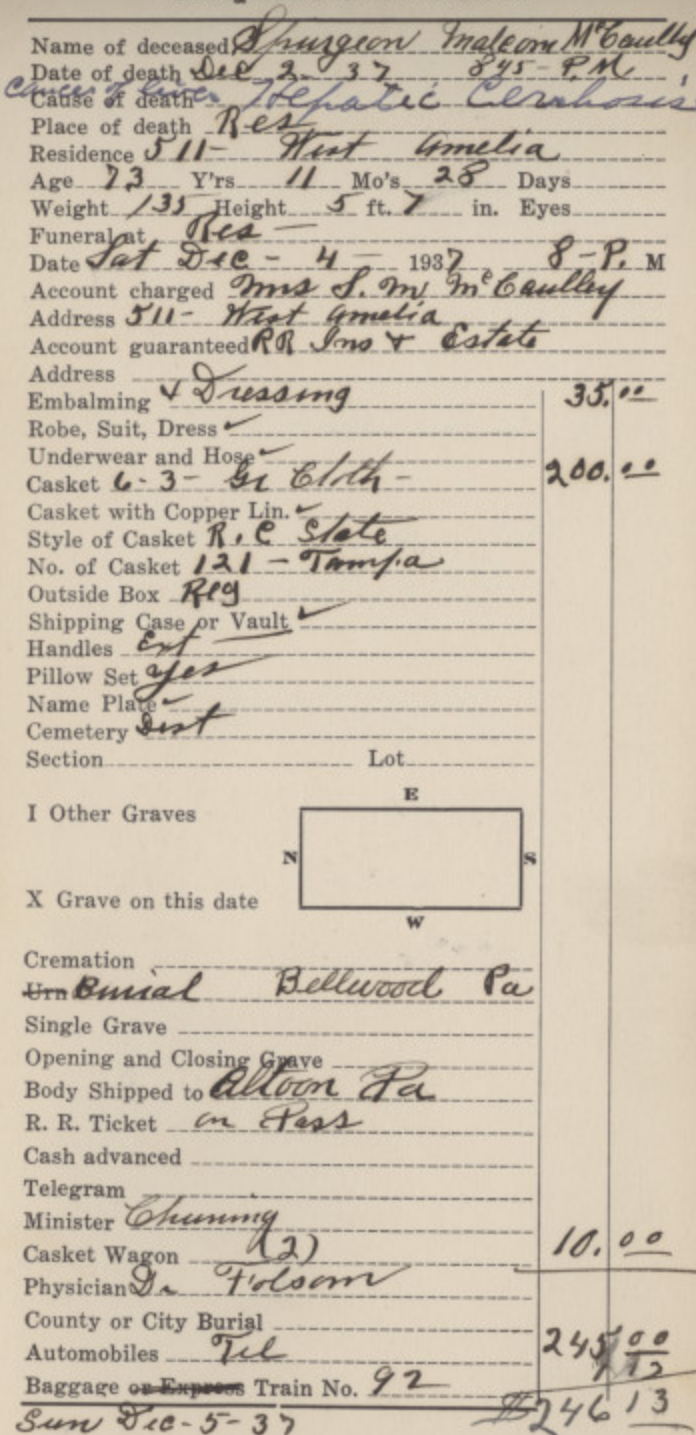 Name of deceased Spurgeon Malcom McCaulley
Date of death Dec 2 - 37 8 45 - P.M
Cause of death cancer of liver Hepatic Cerrhosis
Place of death Res
Residence 511 - West Amelia
Age 73 Y'rs 11 Mo's 28 Days
Weight 135 Height 5 ft. 7 in. Eyes
Funeral at Res -
Date Sat Dec - 4 - 1937 8 - P. M
Account charged Mrs S. M McCaulley
Address 511 - West Amelia
Account guaranteed RR Ins & Estate
Address
Embalming & Dressing 35.00
Robe, Suit, Dress ✓
Underwear and Hose ✓
Casket 6-3- Gr Cloth - 200.00
Casket with Copper Lin. ✓
Style of Casket R. C State
No. of Casket 121 - Tampa
Outside Box Reg
Shipping Case or Vault ✓
Handles Ext
Pillow Set yes
Name Plate ✓
Cemetery Dist
Section Lot
E
I Other Graves
N S
X Grave on this date
W
Cremation
Urn Burial Bellwood Pa
Single Grave
Opening and Closing Grave
Body Shipped to Altoon Pa
R. R. Ticket on Pass
Cash advanced
Telegram
Minister Chunning
Casket Wagon (2) 10.00
Physician Dr Folsom
County or City Burial
Automobiles Tel 245 00
Baggage or Express Train No. 92
Sun Dec-5-37 $246 13